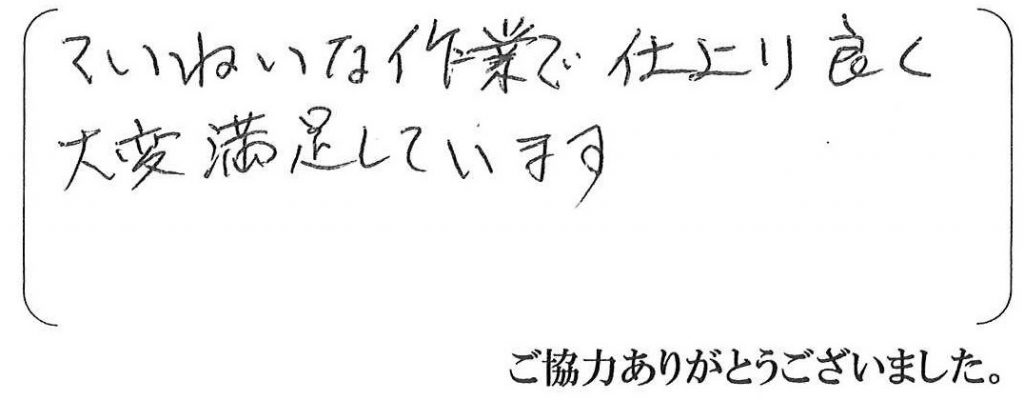 ていねいな作業で仕上り良く
大変満足しています
ご協力ありがとうございました。